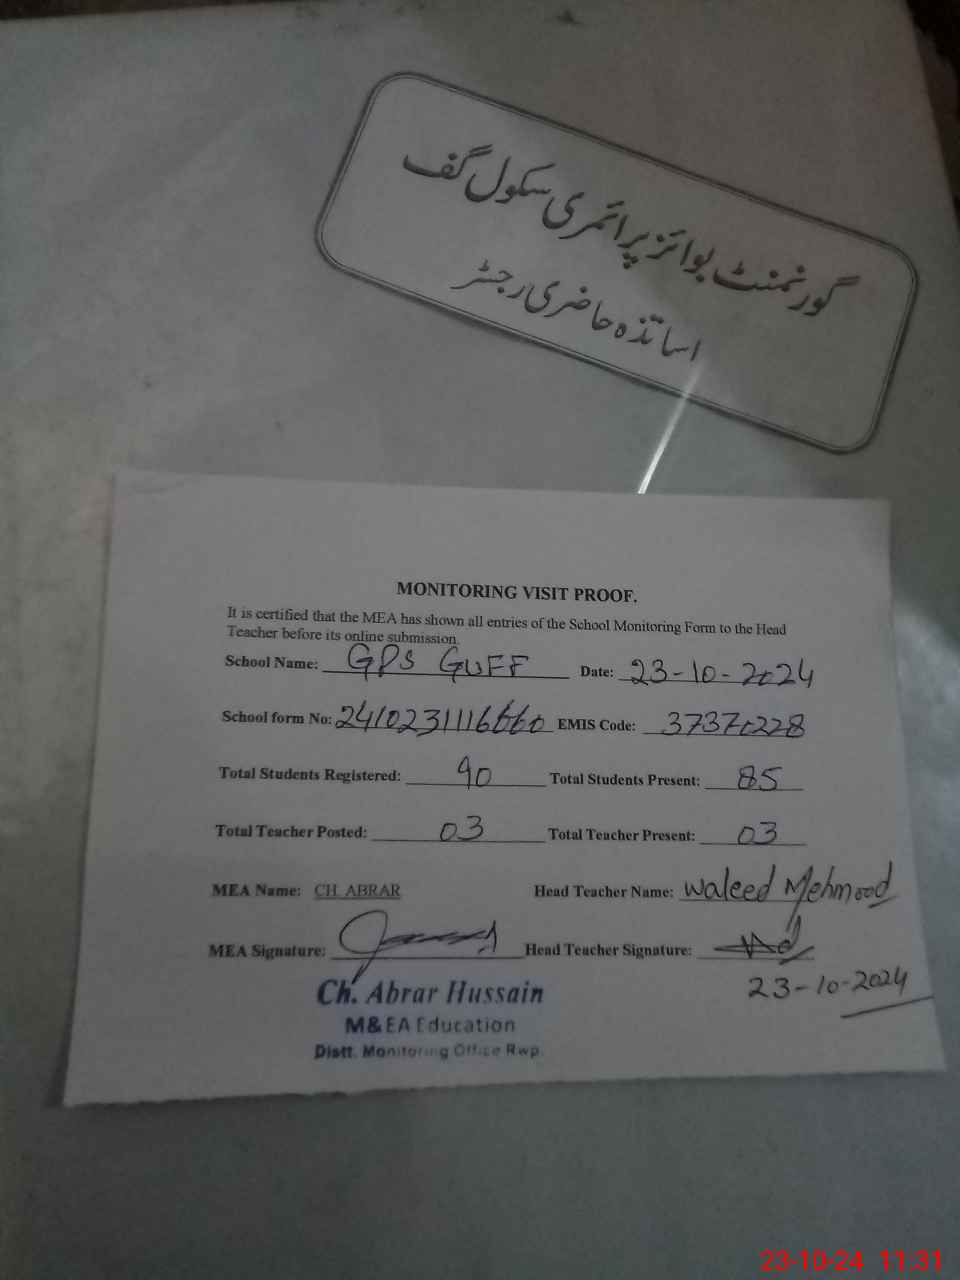 گورنمنٹ بوائز پرائمری سکول گف
اساتذہ حاضری رجسٹر
MONITORING VISIT PROOF.
It is certified that the MEA has shown all entries of the School Monitoring Form to the Head
Teacher before its online submission.
School Name: GPS GUFF Date: 23-10-2024
School form No: 2410231116660 EMIS Code: 37370228
Total Students Registered: 90 Total Students Present: 85
Total Teacher Posted: 03 Total Teacher Present: 03
MEA Name: CH ABRAR Head Teacher Name: Waleed Mehmood
MEA Signature: Head Teacher Signature:
23-10-2024
Ch. Abrar Hussain
M&EA Education
Distt. Monitoring Office Rwp.
23-10-24 11:31